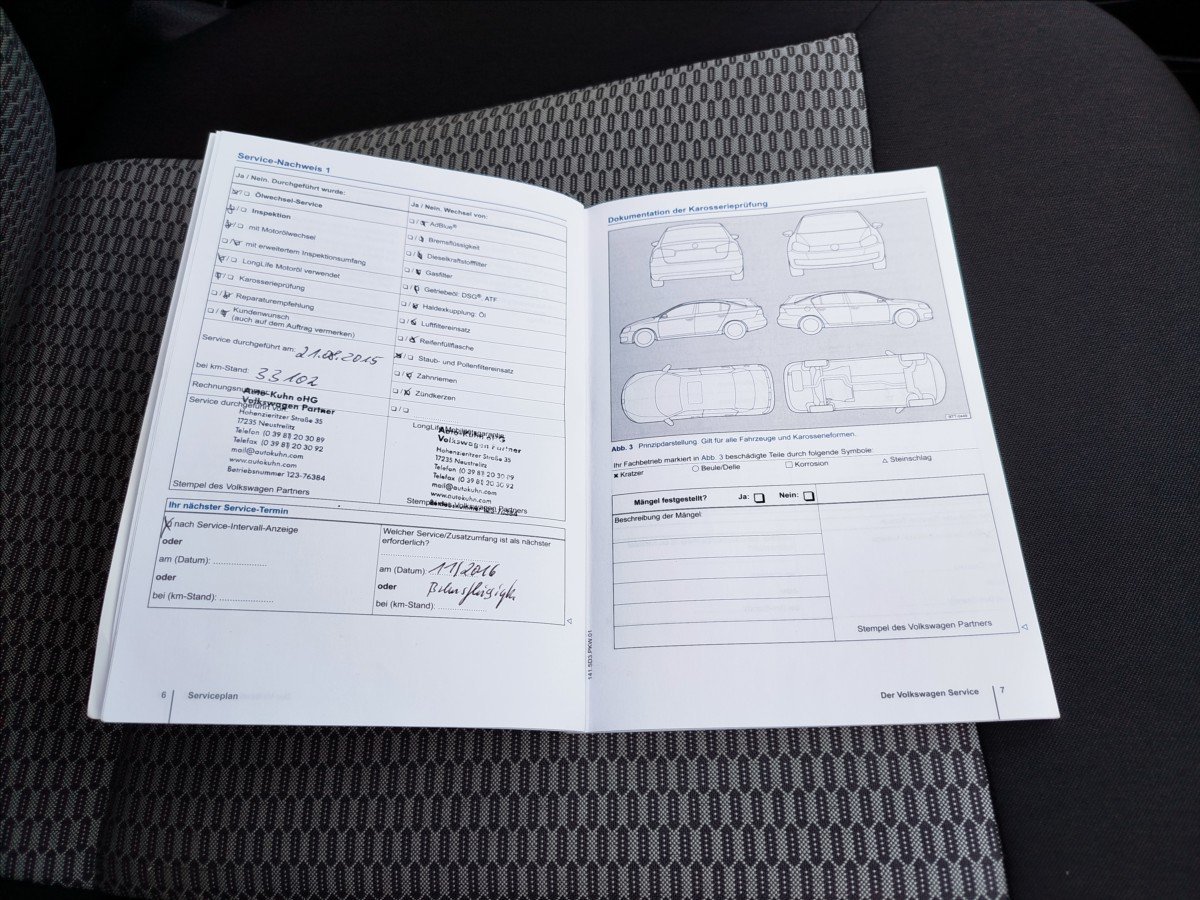 Service-Nachweis 1
Ja / Nein. Durchgeführt wurde:
☒/☐ Ölwechsel-Service
☒/☐ Inspektion
☒/☐ mit Motorölwechsel
☐/☒ mit erweitertem Inspektionsumfang
☒/☐ LongLife Motoröl verwendet
☒/☐ Karosserieprüfung
☐/☒ Reparaturempfehlung
☐/☒ Kundenwunsch
(auch auf dem Auftrag vermerken)
Service durchgeführt am: 21.08.2015
bei km-Stand: 33102
Rechnungsnummer
Service durchgeführt von
Auto-Kuhn oHG
Volkswagen Partner
Hohenzieritzer Straße 35
17235 Neustrelitz
Telefon (0 39 81) 20 30 89
Telefax (0 39 81) 20 30 92
mail@autokuhn.com
www.autokuhn.com
Betriebsnummer 123-76384
Stempel des Volkswagen Partners
Ja / Nein. Wechsel von:
☐/☒ AdBlue®
☐/☒ Bremsflüssigkeit
☐/☒ Dieselkraftstofffilter
☐/☒ Gasfilter
☐/☒ Getriebeöl: DSG®, ATF
☐/☒ Haldexkupplung: Öl
☐/☒ Luftfiltereinsatz
☐/☒ Reifenfüllflasche
☒/☐ Staub- und Pollenfiltereinsatz
☐/☒ Zahnriemen
☐/☒ Zündkerzen
☐/☐
LongLife
Auto-Kuhn oHG
Volkswagen Partner
Hohenzieritzer Straße 35
17235 Neustrelitz
Telefon (0 39 81) 20 30 89
Telefax (0 39 81) 20 30 92
mail@autokuhn.com
www.autokuhn.com
Stempel des Volkswagen Partners
Ihr nächster Service-Termin
☒ nach Service-Intervall-Anzeige
oder
am (Datum):
oder
bei (km-Stand):
Welcher Service/Zusatzumfang ist als nächster
erforderlich?
am (Datum) 11/2016
oder
bei (km-Stand):
6 Serviceplan
Dokumentation der Karosserieprüfung
Abb. 3 Prinzipdarstellung. Gilt für alle Fahrzeuge und Karosserieformen.
Ihr Fachbetrieb markiert in Abb. 3 beschädigte Teile durch folgende Symbole:
× Kratzer ○ Beule/Delle □ Korrosion △ Steinschlag
Mängel festgestellt? Ja: ☐ Nein: ☐
Beschreibung der Mängel:
Stempel des Volkswagen Partners
141.5D3.PKW.01
Der Volkswagen Service 7